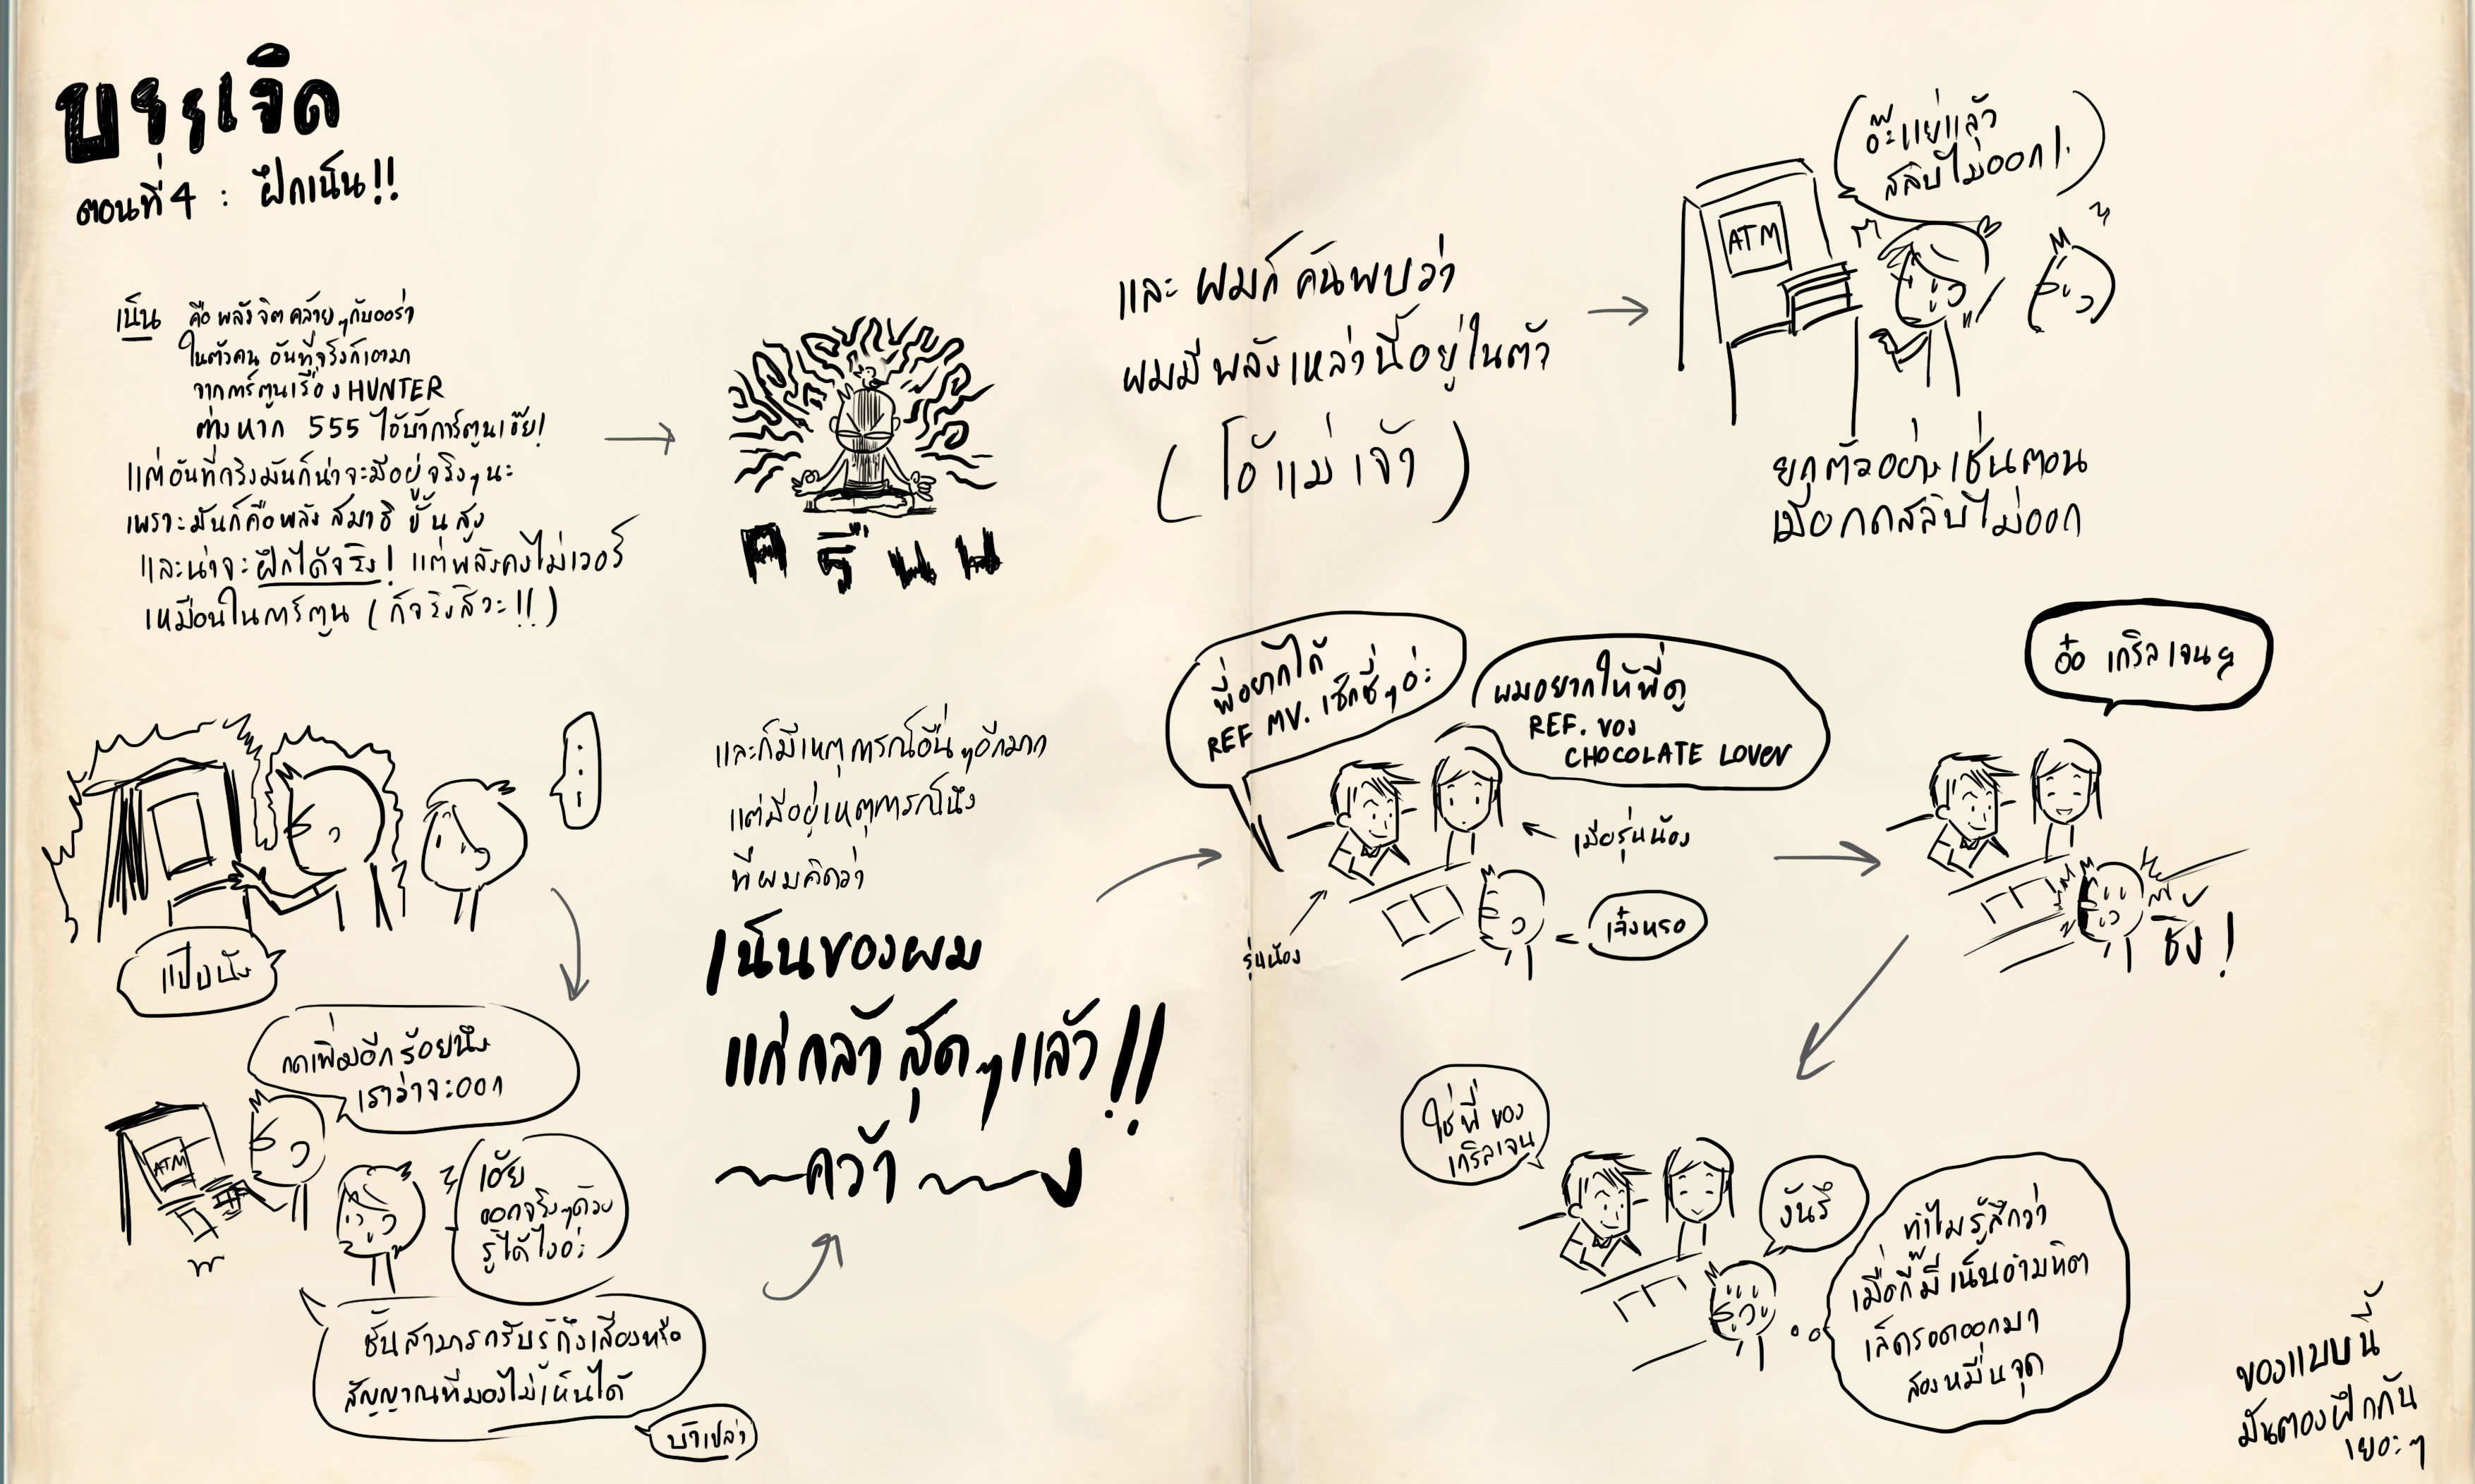 บรรเจิด
ตอนที่ 4 : ฝึกเน็น!!
เน็น คือพลังจิตคล้ายๆกับออร่า
ในตัวคน อันที่จริงก็เอามา
จากการ์ตูนเรื่อง HUNTER
ต่างหาก 555 ไอ้บ้าการ์ตูนเอ๊ย!
แต่อันที่จริงมันก็น่าจะมีอยู่จริงๆนะ
เพราะมันก็คือพลังสมาธิขั้นสูง
และน่าจะฝึกได้จริง! แต่พลังคงไม่เวอร์
เหมือนในการ์ตูน (ก็จริงสิวะ!!)
ครืนน
และผมก็ค้นพบว่า
ผมมีพลังเหล่านี้อยู่ในตัว
(โอ้แม่เจ้า)
อ๊ะแย่แล้ว
สลิปไม่ออก!.
ATM
ยกตัวอย่างเช่นตอน
เมียกดสลิปไม่ออก
:
แป๊บนึง
กดเพิ่มอีกร้อยนึง
เราว่าจะออก
ATM
เฮ้ย
ออกจริงๆด้วย
รู้ได้ไงอ่ะ
ชั้นสามารถรับรู้ถึงเสียงหรือ
สัญญาณที่มองไม่เห็นได้
บ้าเปล่า
และก็มีเหตุการณ์อื่นๆอีกมาก
แต่มีอยู่เหตุการณ์นึง
ที่ผมคิดว่า
เน็นของผม
แก่กล้าสุดๆแล้ว!!
คว้าง
พี่อยากได้
REF MV. เซ็กซี่ๆอ่ะ
ผมอยากให้พี่ดู
REF. ของ
CHOCOLATE LOVER
เมียรุ่นน้อง
รุ่นน้อง
เจ๋งหรอ
อ๋อ เกิร์ลเจนฯ
ชิ้ง!
ใช่พี่ ของ
เกิร์ลเจน
งั้นรึ
ทำไมรู้สึกว่า
เมื่อกี๊มีเน็นอำมหิต
เล็ดรอดออกมา
สองหมื่นจุด
ของแบบนี้
มันต้องฝึกกัน
เยอะๆ